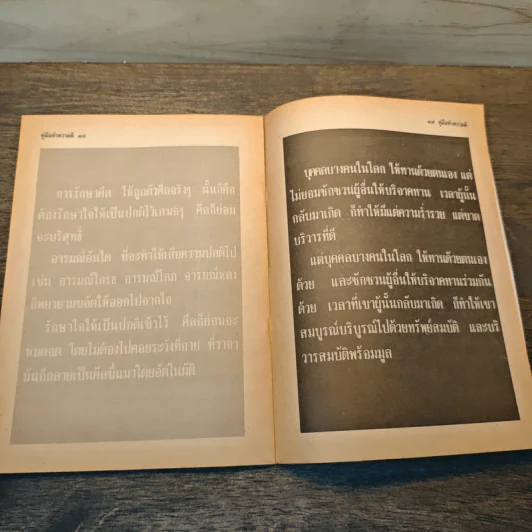 คู่มือทำความดี ๑๘
การรักษาศีล ให้ถูกตัวศีลจริงๆ นั้นก็คือ
ต้องรักษาใจให้เป็นปกติไว้เสมอๆ ศีลก็ย่อม
จะบริสุทธิ์
อารมณ์อันใด ที่จะทำให้เสียความปกติไป
เช่น อารมณ์โกรธ อารมณ์โลภ อารมณ์หลง
ก็พยายามขจัดให้ออกไปจากใจ
รักษาใจให้เป็นปกติเข้าไว้ ศีลก็ย่อมจะ
หมดจด โดยไม่ต้องไปคอยระวังที่กาย ที่วาจา
มันก็กลายเป็นศีลขึ้นมาโดยอัตโนมัติ
๑๙ คู่มือทำความดี
บุคคลบางคนในโลก ให้ทานด้วยตนเอง แต่
ไม่ยอมชักชวนผู้อื่นให้บริจาคทาน เวลาผู้นั้น
กลับมาเกิด ก็ทำให้มีแต่ความร่ำรวย แต่ขาด
บริวารที่ดี
แต่บุคคลบางคนในโลก ให้ทานด้วยตนเอง
ด้วย และชักชวนผู้อื่นให้บริจาคทานร่วมกัน
ด้วย เวลาที่เขาผู้นั้นกลับมาเกิด ก็ทำให้เขา
สมบูรณ์บริบูรณ์ไปด้วยทรัพย์สมบัติ และบริ
วารสมบัติพร้อมมูล